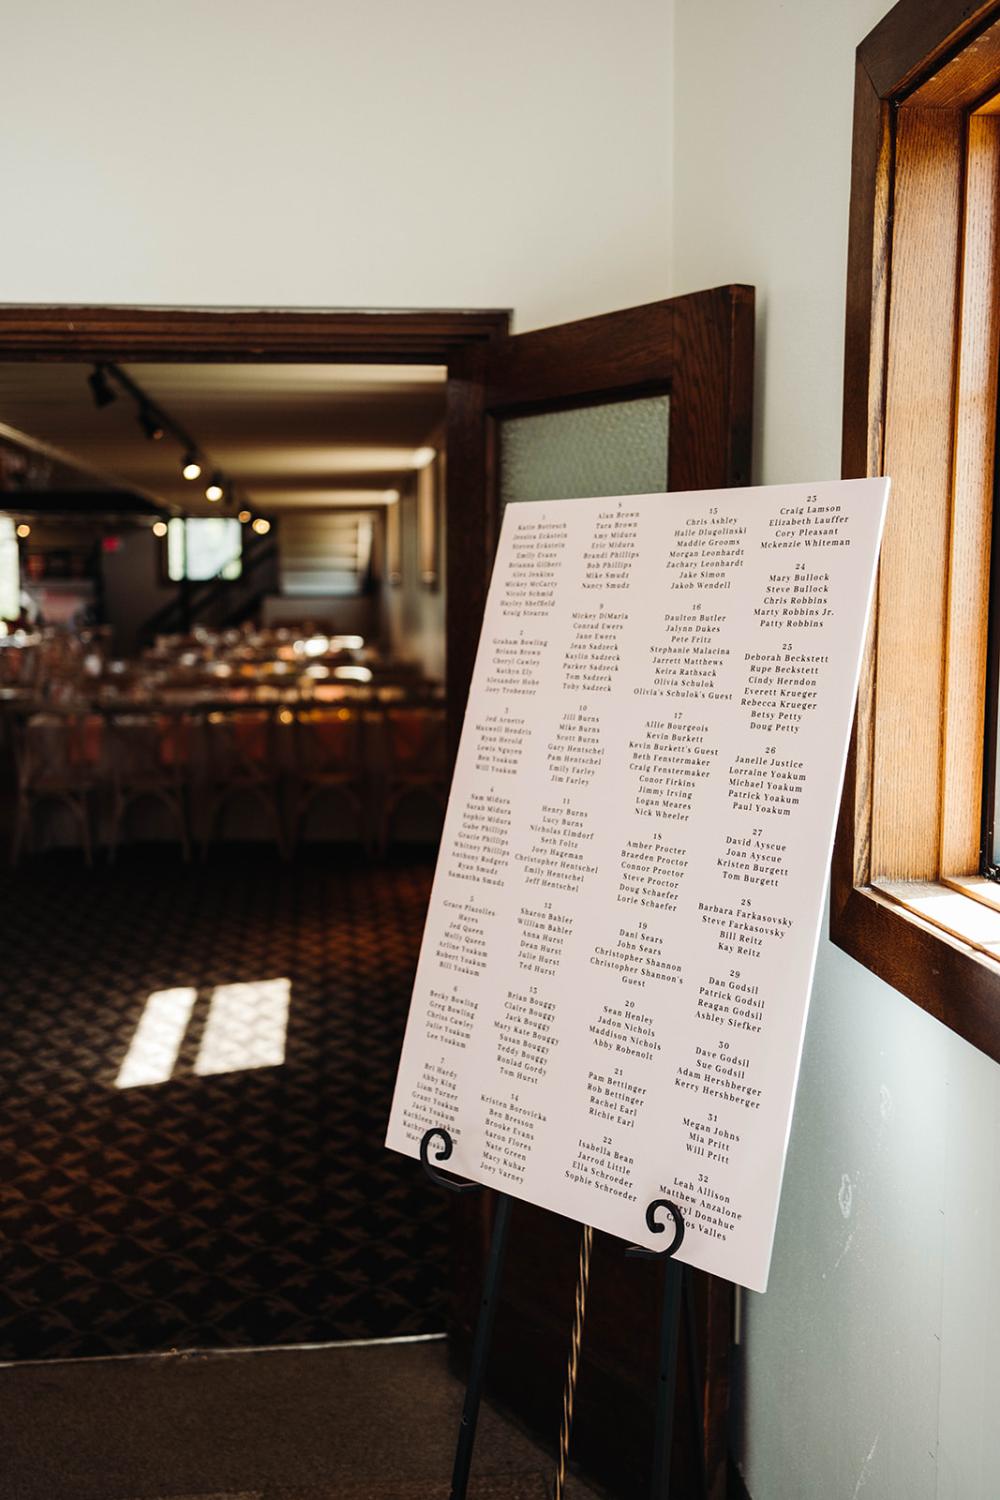 1
Katie Bottesch
Jessica Eckstein
Steven Eckstein
Emily Evans
Brianna Gilbert
Alex Jenkins
Mickey McCarty
Nicole Schmid
Hayley Sheffield
Kraig Stearns
2
Graham Bowling
Briana Brown
Cheryl Cawley
Kathyn Ely
Alexander Hohe
Joey Trobenter
3
Jed Arnette
Maxwell Hendris
Ryan Herold
Lewis Nguyen
Ben Yoakum
Will Yoakum
4
Sam Midura
Sarah Midura
Sophie Midura
Gabe Phillips
Gracie Phillips
Whitney Phillips
Anthony Rodgers
Ryan Smudz
Samantha Smudz
5
Grace Plazolles-
Hayes
Jed Queen
Molly Queen
Arline Yoakum
Robert Yoakum
Bill Yoakum
6
Becky Bowling
Greg Bowling
Chriss Cawley
Julie Yoakum
Lee Yoakum
7
Bri Hardy
Abby King
Liam Turner
Grant Yoakum
Jack Yoakum
Kathleen Yoakum
8
Alan Brown
Tara Brown
Amy Midura
Eric Midura
Brandi Phillips
Bob Phillips
Mike Smudz
Nancy Smudz
9
Mickey DiMaria
Conrad Ewers
Jane Ewers
Jean Sadzeck
Kaylin Sadzeck
Parker Sadzeck
Tom Sadzeck
Toby Sadzeck
10
Jill Burns
Mike Burns
Scott Burns
Gary Hentschel
Pam Hentschel
Emily Farley
Jim Farley
11
Henry Burns
Lucy Burns
Nicholas Elmdorf
Seth Foltz
Joey Hageman
Christopher Hentschel
Emily Hentschel
Jeff Hentschel
12
Sharon Bahler
William Bahler
Anna Hurst
Dean Hurst
Julie Hurst
Ted Hurst
13
Brian Bouggy
Claire Bouggy
Jack Bouggy
Mary Kate Bouggy
Susan Bouggy
Teddy Bouggy
Ronlad Gordy
Tom Hurst
14
Kristen Borovicka
Ben Bresson
Brooke Evans
Aaron Flores
Nate Green
Macy Kuhar
Joey Varney
15
Chris Ashley
Halle Dlugolinski
Maddie Grooms
Morgan Leonhardt
Zachary Leonhardt
Jake Simon
Jakob Wendell
16
Daulton Butler
Jalynn Dukes
Pete Fritz
Stephanie Malacina
Jarrett Matthews
Keira Rathsack
Olivia Schulok
Olivia's Schulok's Guest
17
Allie Bourgeois
Kevin Burkett
Kevin Burkett's Guest
Beth Fenstermaker
Craig Fenstermaker
Conor Firkins
Jimmy Irving
Logan Meares
Nick Wheeler
18
Amber Procter
Braeden Proctor
Connor Proctor
Steve Proctor
Doug Schaefer
Lorie Schaefer
19
Dani Sears
John Sears
Christopher Shannon
Christopher Shannon's
Guest
20
Sean Henley
Jadon Nichols
Maddison Nichols
Abby Robenolt
21
Pam Bettinger
Rob Bettinger
Rachel Earl
Richie Earl
22
Isabella Bean
Jarrod Little
Ella Schroeder
Sophie Schroeder
23
Craig Lamson
Elizabeth Lauffer
Cory Pleasant
Mckenzie Whiteman
24
Mary Bullock
Steve Bullock
Chris Robbins
Marty Robbins Jr.
Patty Robbins
25
Deborah Beckstett
Rupe Beckstett
Cindy Herndon
Everett Krueger
Rebecca Krueger
Betsy Petty
Doug Petty
26
Janelle Justice
Lorraine Yoakum
Michael Yoakum
Patrick Yoakum
Paul Yoakum
27
David Ayscue
Joan Ayscue
Kristen Burgett
Tom Burgett
28
Barbara Farkasovsky
Steve Farkasovsky
Bill Reitz
Kay Reitz
29
Dan Godsil
Patrick Godsil
Reagan Godsil
Ashley Siefker
30
Dave Godsil
Sue Godsil
Adam Hershberger
Kerry Hershberger
31
Megan Johns
Mia Pritt
Will Pritt
32
Leah Allison
Matthew Anzalone
Donahue
Valles